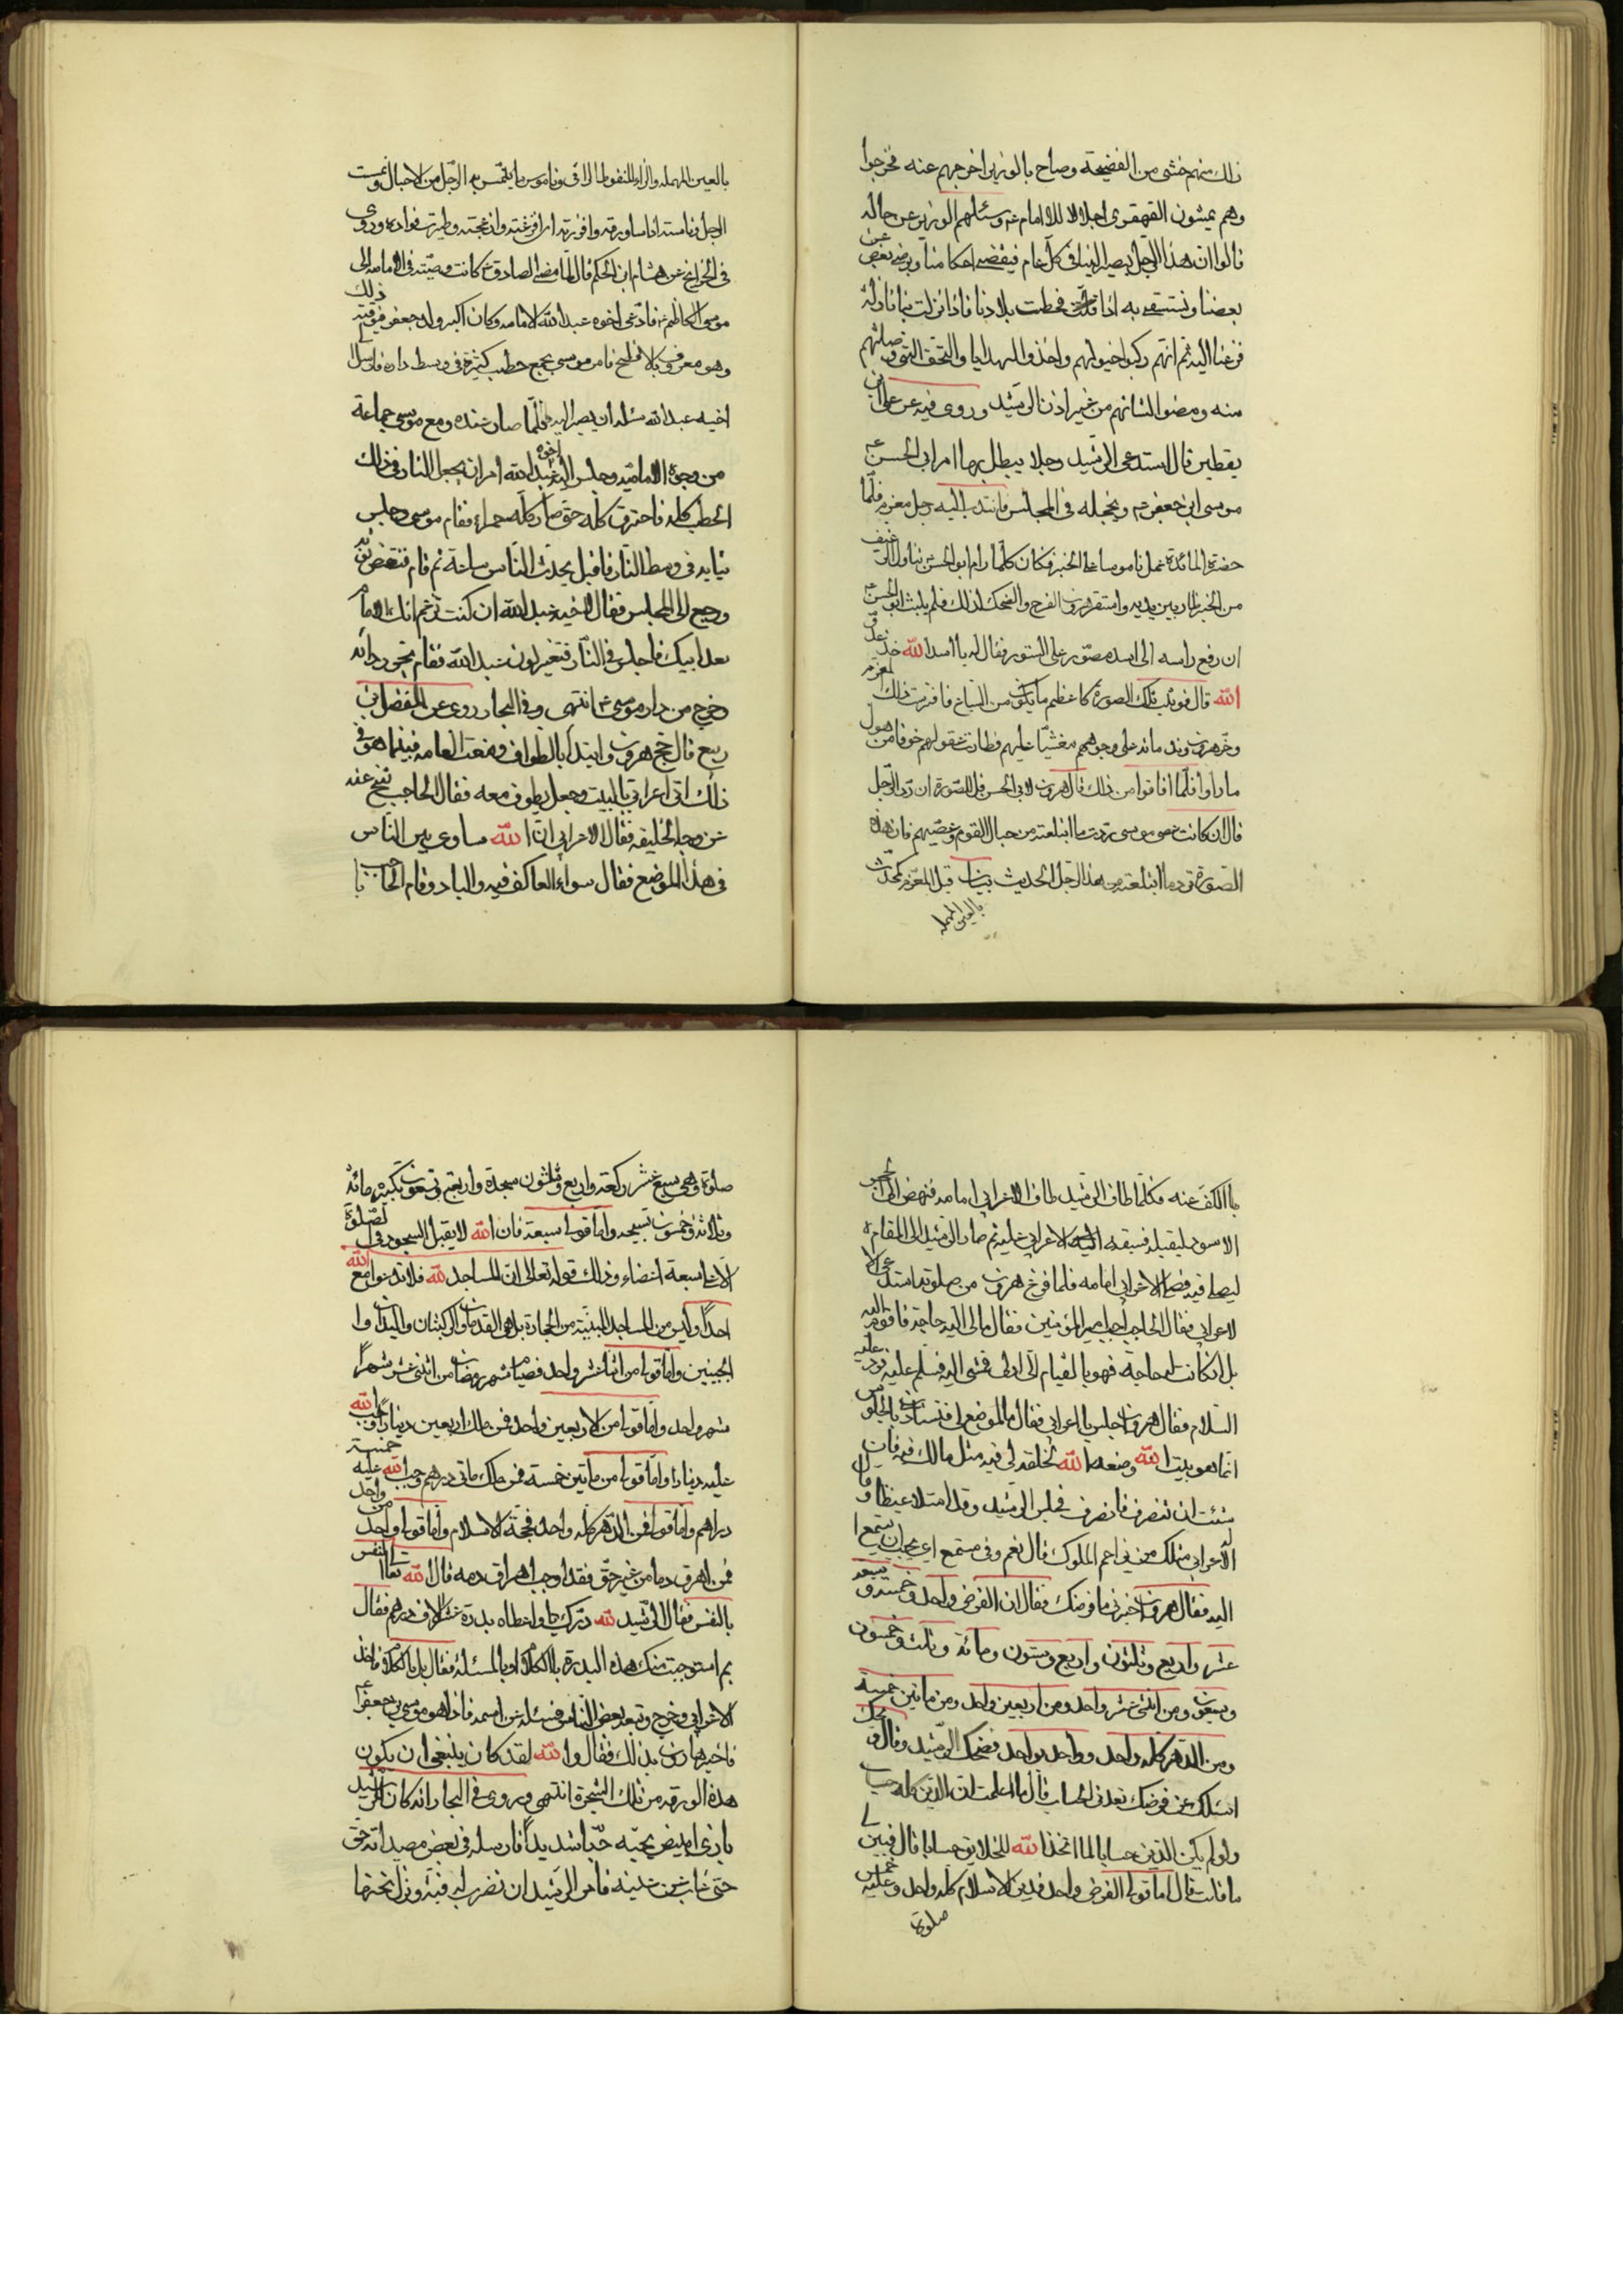 ذلك منهم خشى من الفضيحة وصاح بالوزير اخرجهم عنه فخرجوا
وهم يمشون القهقرى اجلالا للامام ع وسئلهم الوزير عن حاله
قالوا ان هذا الرجل يصير الينا فى كل عام فيقضى احكامنا ويرضى بعض عن
بعضنا ونستسقى به اذا قحطت بلادنا فاذا نزلت بنا نازلة
فزعنا اليه ثم انهم ركبوا خيولهم واخذوا الهدايا والتحف التى وصلتهم
منه ومضوا لشانهم من غير اذن الرشيد وروى فيه عن على ابن
يقطين قال استدعى الرشيد رجلا يبطل بها امر ابى الحسن ع
موسى ابن جعفر ع ويخجله فى المجلس فانتدب اليه رجل معزم فلما
حضرة المائدة عمل ناموسا على الخبز فكان كلما رام ابو الحسن تناول رغيف
من الخبز طار بين يديه واستقر هرون الفرح والضحك لذلك فلم يلبث ابو الحسن ع
ان رفع راسه الى اسد مصور على الستور فقال له يا اسد الله خذ عدو
الله قال فوثب تلك الصورة كاعظم ما يكون من السباع فافترست ذلك المعزم
وخر هرون وندمائه على وجوههم مغشيا عليهم وطارت عقولهم خوفا من هول
ما راوا فلما افاقوا من ذلك قال هرون لابى الحسن قل للصورة ان ترد الرجل
قال ان كانت عصى موسى ردت ما ابتلعته من حبال القوم وعصيهم فان هذه
الصورة ترد ما ابتلعته من هذا الرجل الحديث بيان قيل المعزم كمحدث
بالعين المهمله
بالعين المهملة والزاء المنقوطة الراقى وناموس ما يتمس به الرجل من الاحبال ونمست
الرجل ونامسته اذا ساورته وافزرته اى افزعته وازعجته وطيرت فواده وروى
فى الخرايج عن هشام ابن الحكم قال لما مضى الصادق ع كانت وصيته فى الامامة الى
موسى الكاظم ع فادعى اخوه عبد الله الامامة وكان اكبر ولد جعفر فى وقته ذلك
وهو معروف بالافطح فامر موسى بجمع حطب كثيرة فى وسط داره فارسل الى
اخيه عبد الله سئله ان يصير اليه فلما صار عنده ومع موسى جماعة
من وجوة الامامية وجلس اليه اخوه عبد الله امر ان يجعل النار فى ذلك
الحطب كله فاحترق كله حتى صار كله حمراء فقام موسى وجلس
بثيابه فى وسط النار فاقبل يحدث الناس ساعة ثم قام فنفض ثوبه
ورجع الى المجلس فقال لاخيه عبد الله ان كنت تزعم انك الامام
بعد ابيك فاجلس فى النار فتغير لون عبد الله فقام يجر ردائه
وخرج من دار موسى ع انتهى وفى البحار روى عن الفضل ابن
ربيع قال حج هرون وابتدأ بالطواف ومنعت العامة فبينما هو فى
ذلك اتى اعرابى بالبيت وجعل يطوف معه فقال الحاجب تنح عنه
عن وجه الخليفه فقال الاعرابى ان الله ساوى بين الناس
فى هذا الموضع فقال سواء العاكف فيه والباد وقام الحاجب با
با الكف عنه فكلما طاف الرشيد طاف الاعرابى امامه فنهض الى الحجر
الاسود ليقبله فسبقه اليه الاعرابى عليه ثم صار الرشيد الى المقام
ليصلى فيه فصلى الاعرابى امامه فلما فرغ هرون من صلوته استدعى الا
لاعرابى فقال الحاجب اجب امير المؤمنين فقال مالى اليه حاجة فاقوم اليه
بل ان كانت له حاجة فهو بالقيام الى اولى فمشى اليه فسلم عليه فرد عليه
السلام فقال هرون اجلس يا اعرابى فقال ما الموضع لى فتستاذن بالجلوس
انما هو بيت الله وضعه الله لخلقه لى فيه مثل مالك فيه فان
شئت ان تنصرف فانصرف فجلس الرشيد وقد امتلا غيظا وقال
الاعرابى مثلك من يزاحم الملوك قال نعم وفى مستمع اى يجب ان يستمع
اليه فقال هرون اخبرنى ما فرضك فقال ان الفرض واحد وخمسة وسبعة
عشر واربع وثلثون واربع وستون ومائة وثلث وخمسون
وسبعون ومن اثنى عشر واحد ومن اربعين واحد ومن ماتين خمسة
ومن الدهر كله واحد وواحد بواحد فضحك الرشيد وقال ويحك
اسئلك عن فرضك تعدنى الحساب قال اما علمت ان الدين كله حساب
ولو لم يكن الدين حسابا لما اتخذ الله للخلايق حسابا قال فبين لى
ما قلت قال اما قولى الفرض واحد فدين الاسلام كله واحد وعليه خمس
صلوة
صلوة وهى سبع عشر ركعة واربع وثلثون سجدة واربع وتسعون تكبيرة مائة
وثلاثة وخمسون تسبيحه واما قولى سبعة فان الله لا يقبل السجود فى الصلوة
الا على سبعة اعضاء وذلك قوله تعالى ان المساجد لله فلا تدعوا مع الله
احدا وليس من المساجد المبنية من الحجارة بل هى القدمان والركبتان واليدان وا
الجبينين واما قولى من اثنا عشر واحد فصيام شهر رمضان من اثنى عشر شهرا
شهر واحد واما قولى من الاربعين واحد فمن ملك اربعين دينارا وجب الله
عليه دينارا واما قولى من ماتين خمسة فمن ملك ماتى درهم وجب الله عليه خمسة
دراهم واما قولى فمن الدهر كله واحد فحجة الاسلام واما قولى واحد من واحد
فمن اهرق دما من غير حق فقد اوجب اهراق دمه قال الله تعالى النفس
بالنفس فقال الرشيد لله درك يا واعطاه بدرة عشر الاف درهم فقال
بم استوجبت منك هذه البدرة بالكلام او بالمسئلة فقال بل بالكلام فاخذ
الاعرابى وخرج وتبعه بعض الناس فسئله عن اسمه فاذا هو موسى بن جعفر ع
فاخبر هارون بذلك فقال والله لقد كان ينبغى ان يكون
هذه الورقة من تلك الشجرة انتهى ويروى فى البحار انه كان للرشيد
بازى ابيض يحبه حبا شديدا فارسله فى بعض مصيداته حتى
حتى غاب عن عينه فامر الرشيد ان تضرب له قبة ونزل تحتها